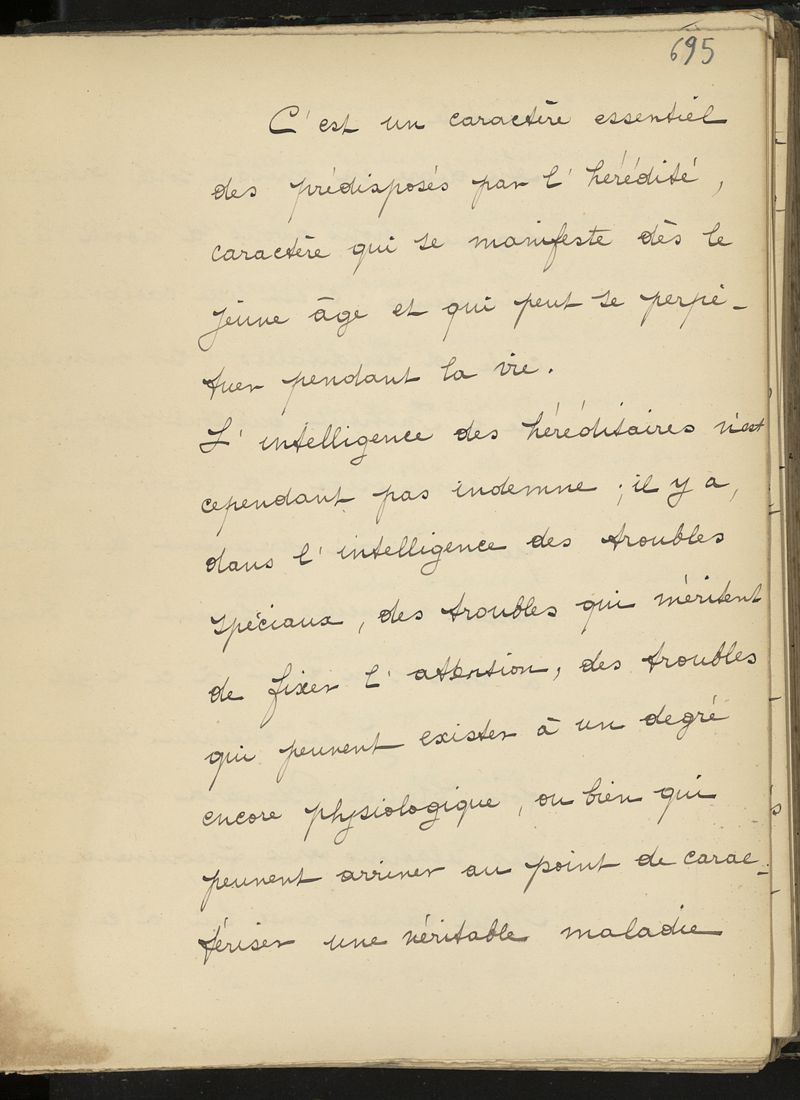 695
C'est un caractère essentiel
des prédisposés par l'hérédité,
caractère qui se manifeste dès le
jeune âge et qui peut se perpé-
tuer pendant la vie.
L'intelligence des héréditaires n'est
cependant pas indemne ; il y a,
dans l'intelligence des troubles
spéciaux, des troubles qui méritent
de fixer l'attention, des troubles
qui peuvent exister à un degré
encore physiologique, ou bien qui
peuvent arriver au point de carac-
tériser une véritable maladie